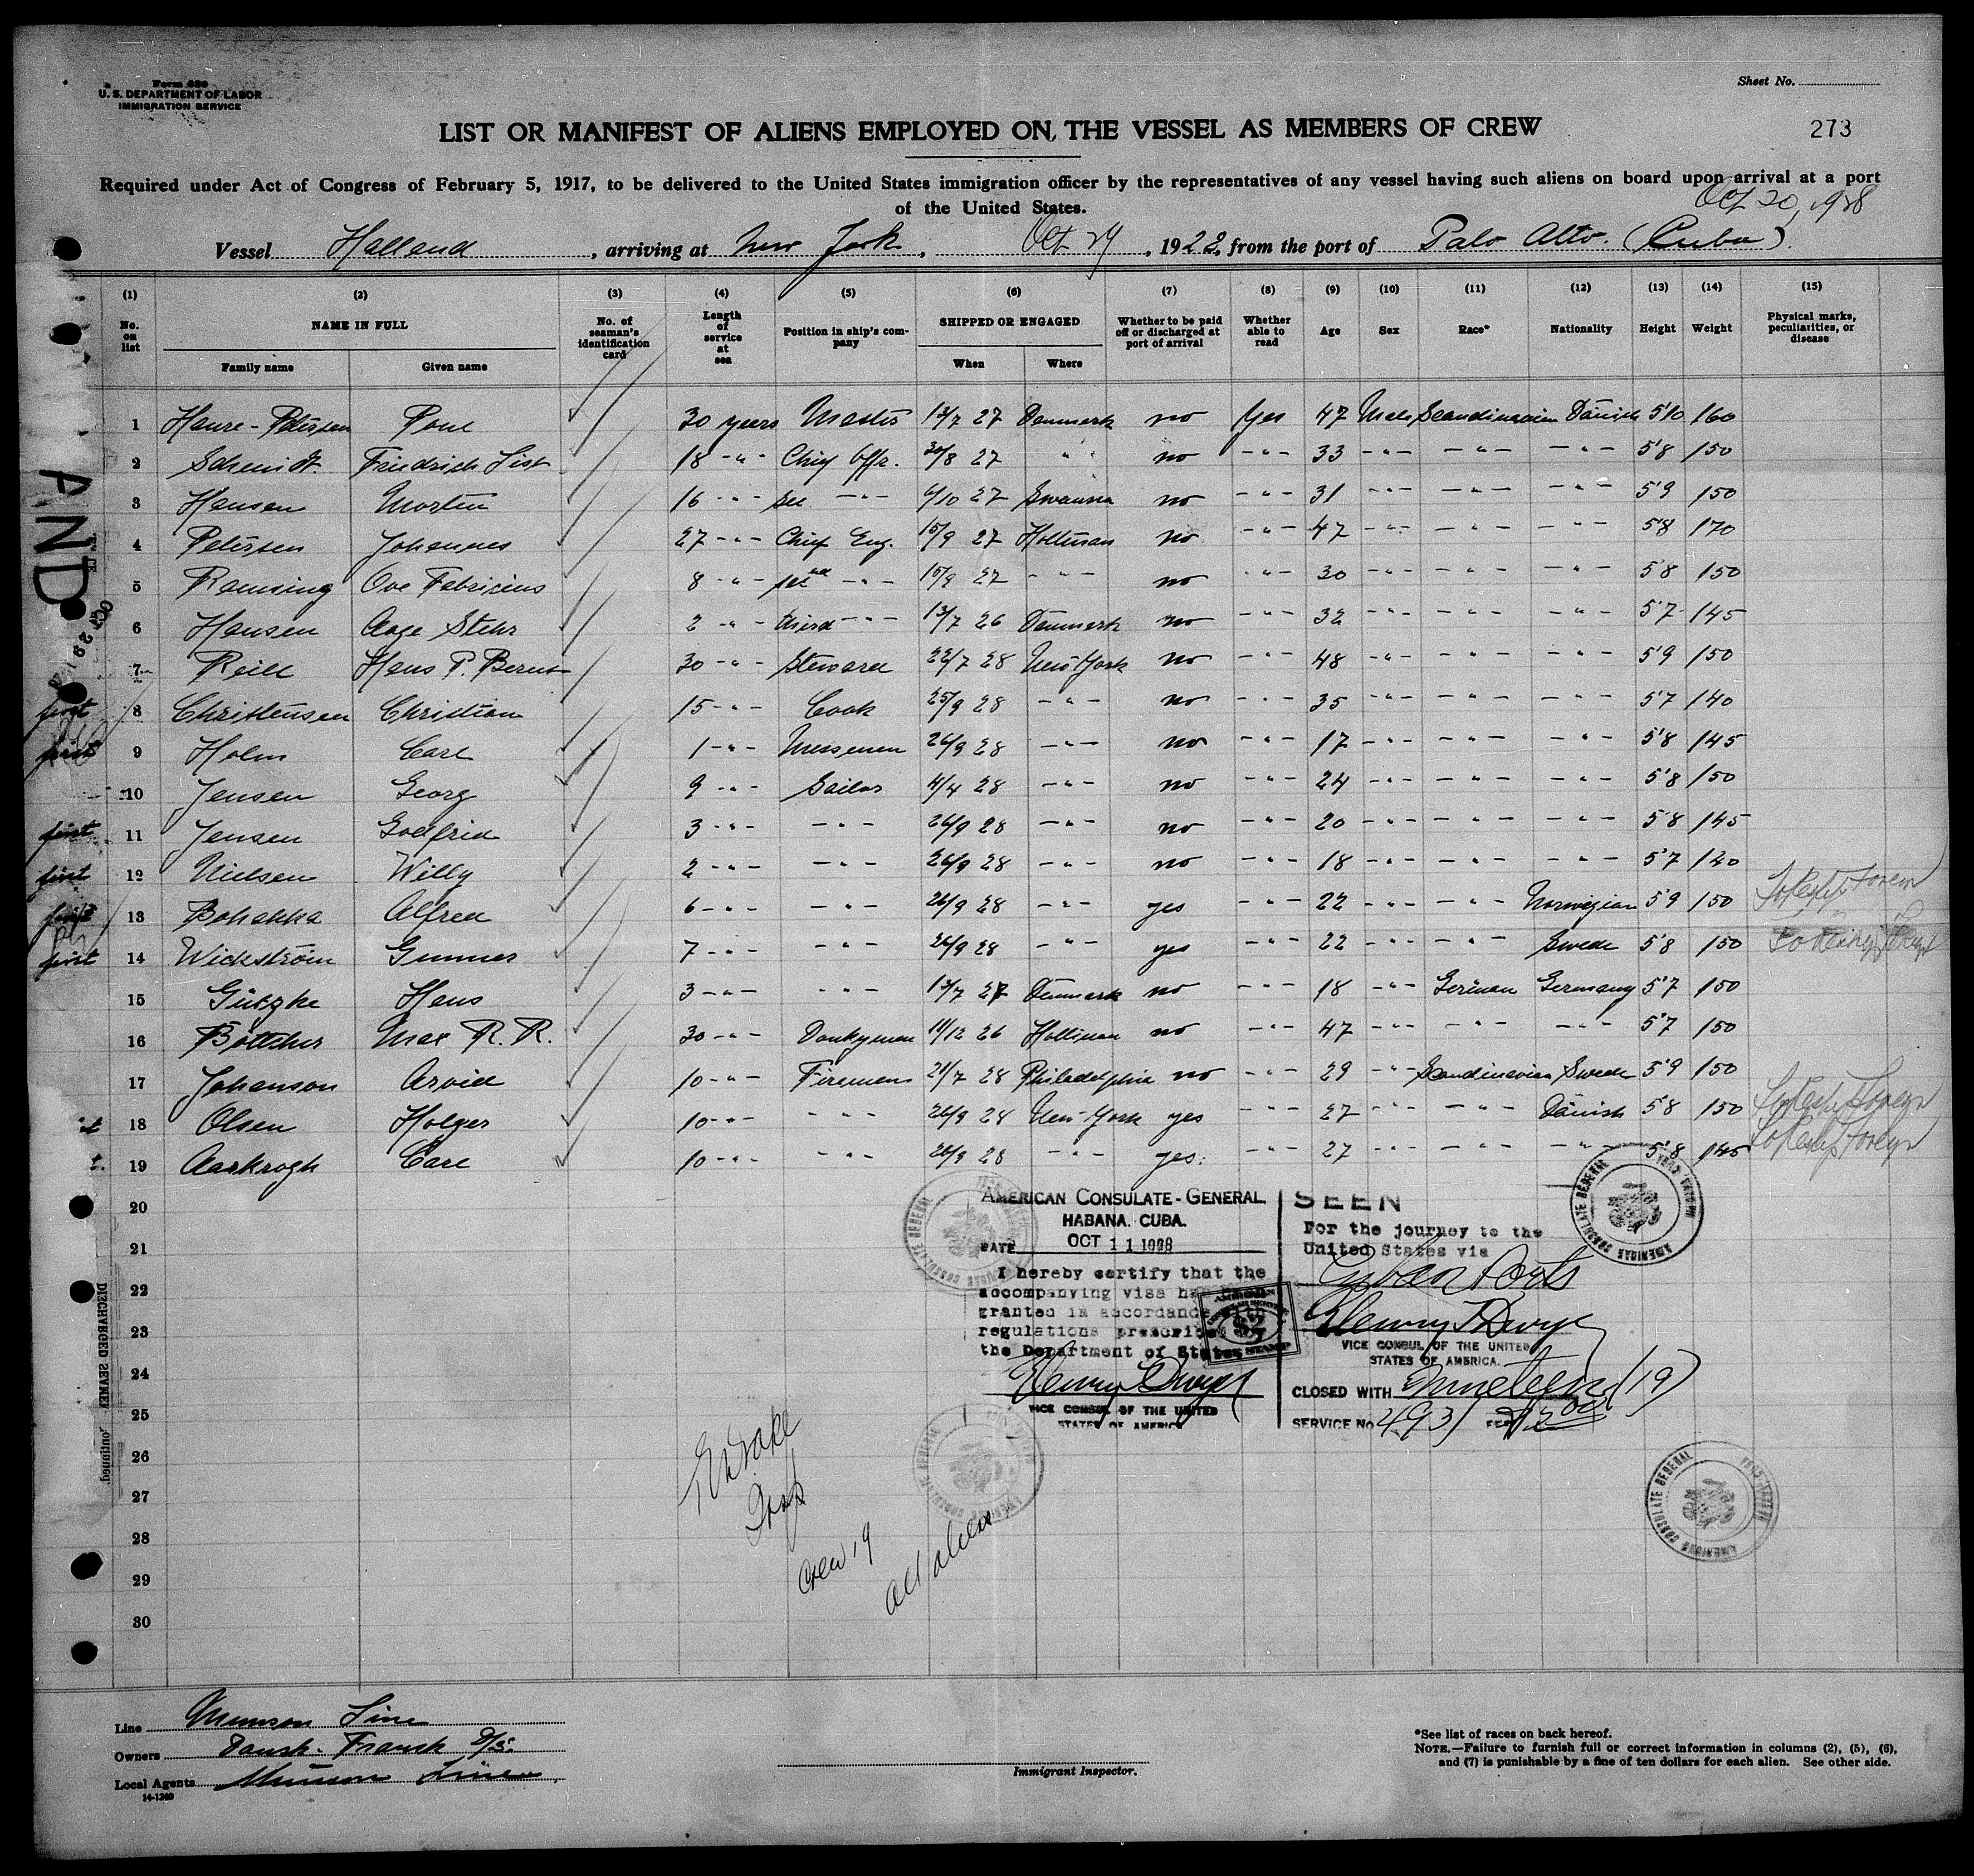 Form 689
U. S. DEPARTMENT OF LABOR
IMMIGRATION SERVICE
Sheet No.
LIST OR MANIFEST OF ALIENS EMPLOYED ON THE VESSEL AS MEMBERS OF CREW
273
Required under Act of Congress of February 5, 1917, to be delivered to the United States immigration officer by the representatives of any vessel having such aliens on board upon arrival at a port
of the United States.
Oct 20, 1928
Vessel Halland, arriving at New York, Oct 29, 1928, from the port of Palo Alto. (Cuba).
(1) (2) (3) (4) (5) (6) (7) (8) (9) (10) (11) (12) (13) (14) (15)
No. on list NAME IN FULL No. of seaman's identification card Length of service at sea Position in ship's company SHIPPED OR ENGAGED Whether to be paid off or discharged at port of arrival Whether able to read Age Sex Race* Nationality Height Weight Physical marks, peculiarities, or disease
Family name Given name When Where
1 Haure-Petersen Poul 30 years Master 13/7 27 Denmark no Yes 47 Male Scandinavian Danish 5'10 160
2 Schmidt Friedrich List 18 -"- Chief Offr. 30/8 27 " " no -"- 33 -"- -"- -"- 5'8 150
3 Hansen Morten 16 -"- sec -"- 6/10 27 no -"- 31 -"- -"- -"- 5'9 150
4 Petersen Johannes 27 -"- Chief Eng. 15/9 27 no -"- 47 -"- -"- -"- 5'8 170
5 Ramsing Ove Fabricius 8 -"- -"- 15/9 27 -"- no -"- 30 -"- -"- -"- 5'8 150
6 Hansen Aage Stehr 2 -"- third -"- 13/7 26 Denmark no -"- 32 -"- -"- -"- 5'7 145
7 Reill Hans P. Bernt 30 -"- Steward 22/7 28 New York no -"- 48 -"- -"- -"- 5'9 150
first 8 Christensen Christian 15 -"- Cook 25/9 28 -"- no -"- 35 -"- -"- -"- 5'7 140
first 9 Holm Carl 1 -"- Messeman 26/9 28 -"- no -"- 17 -"- -"- -"- 5'8 145
10 Jensen Georg 9 -"- Sailor 4/4 28 -"- no -"- 24 -"- -"- -"- 5'8 150
first 11 Jensen Godfred 3 -"- -"- 26/9 28 -"- no -"- 20 -"- -"- -"- 5'8 145
first 12 Nielsen Willy 2 -"- -"- 26/9 28 -"- no -"- 18 -"- -"- -"- 5'7 120
first 13 Alfred 6 -"- -"- 26/9 28 -"- yes -"- 22 -"- -"- Norwegian 5'9 150 To Reship Foreign
first 14 Wickström Gunnar 7 -"- -"- 26/9 28 -"- yes -"- 22 -"- -"- Swede 5'8 150 To Reship Foreign
15 Gützke Hans 3 -"- -"- 13/7 27 Denmark no -"- 18 -"- German Germany 5'7 150
16 Böttcher Max R. R. 30 -"- Donkyman 11/12 26 no -"- 47 -"- -"- -"- 5'7 150
17 Johanson Arvid 10 -"- Firemen 21/7 28 Philadelphia no -"- 29 -"- Scandinavian Swede 5'9 150
18 Olsen Holger 10 -"- -"- 26/9 28 New-York yes -"- 27 -"- -"- Danish 5'8 150 To Reship Foreign
19 Aarkrogh Carl 10 -"- -"- 26/9 28 -"- yes. -"- 27 -"- -"- -"- 5'8 145 To Reship Foreign
20
21
22
23
24
25
26
27
28
29
30
AMERICAN CONSULATE-GENERAL
HABANA. CUBA.
DATE OCT 11 1928
I hereby certify that the
accompanying visa has been
granted in accordance with
regulations prescribed
the Department of State
VICE CONSUL OF THE UNITED
STATES OF AMERICA
SEEN
For the journey to the
United States via
Cuban Ports
VICE CONSUL OF THE UNITED
STATES OF AMERICA.
CLOSED WITH Nineteen (19)
SERVICE No 4931 FEE $2.00
Crew 19
all aliens
DISCHARGED SEAMEN
Line Munson Line
Owners Dansk-Fransk D/S.
Local Agents Munson Line
14-1240
Immigrant Inspector.
*See list of races on back hereof.
NOTE.—Failure to furnish full or correct information in columns (2), (5), (6),
and (7) is punishable by a fine of ten dollars for each alien. See other side.